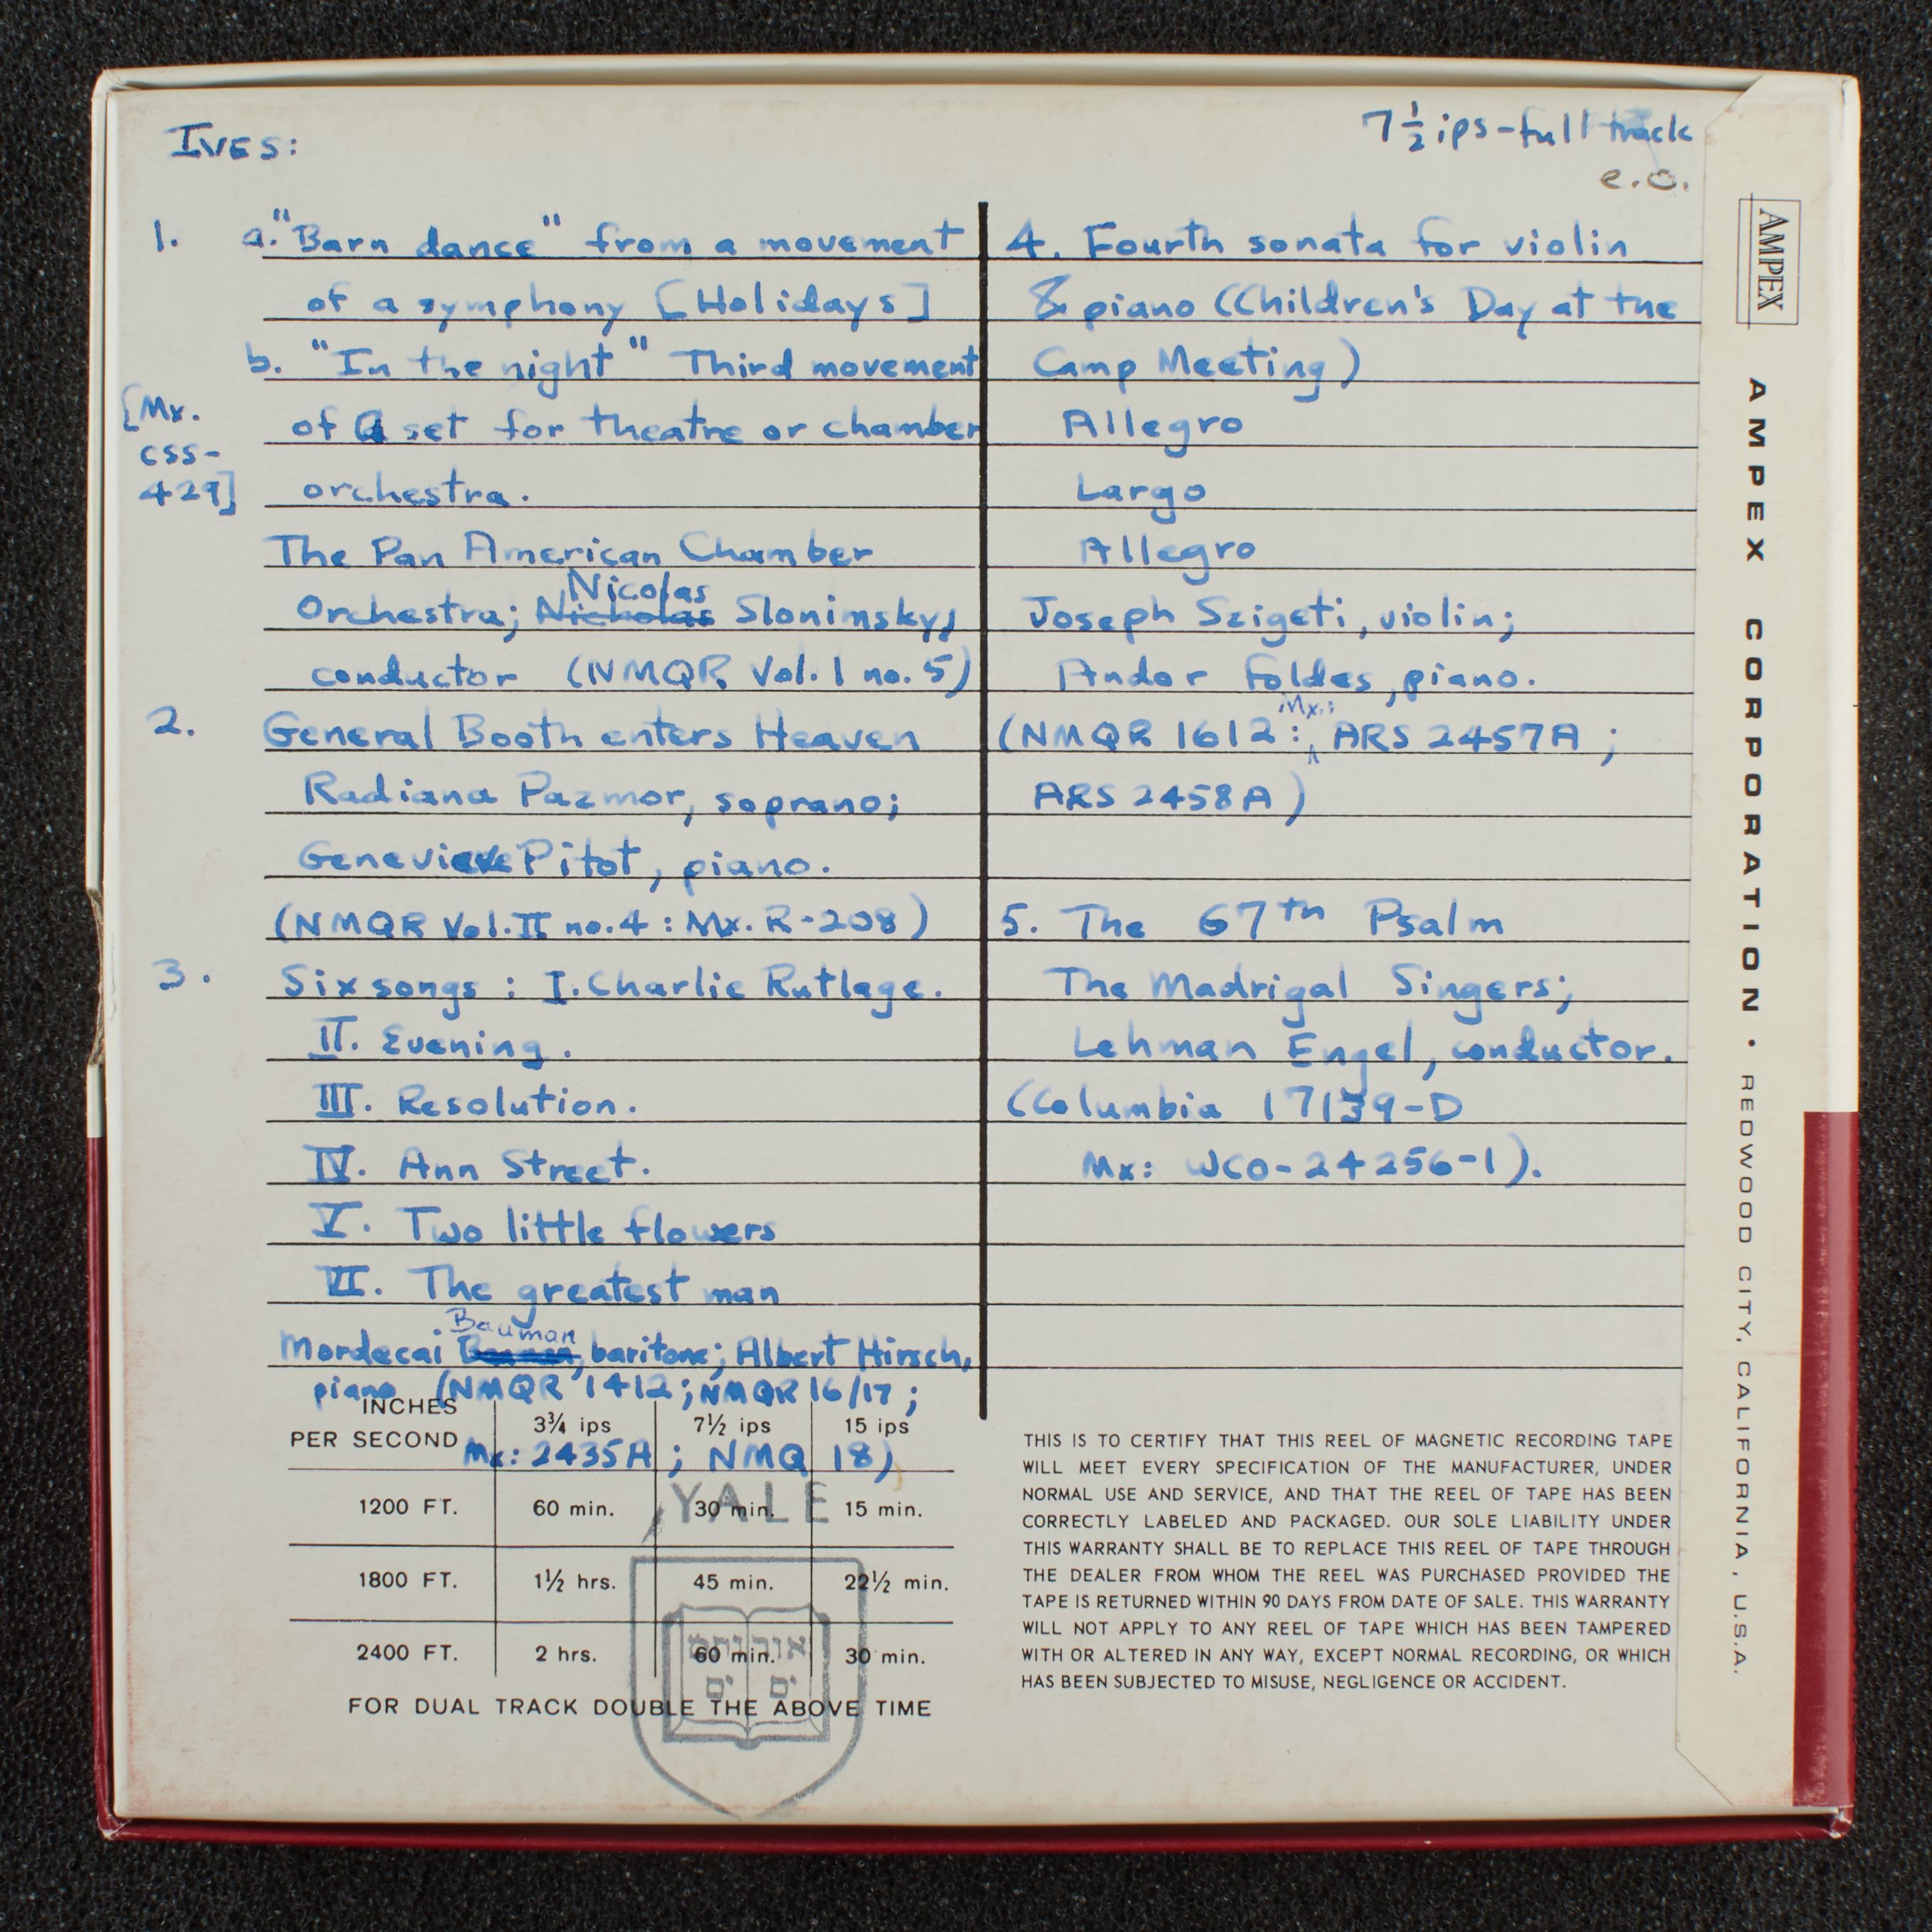 IVES:
7 1/2 ips-full track
e.o.
1. a. "Barn dance" from a movement
of a symphony [Holidays]
b. "In the night" Third movement
[Mx.
CSS-
429]
of a set for theatre or chamber
orchestra.
The Pan American Chamber
Nicolas
Orchestra; Nicholas Slonimsky,
conductor (NMQR Vol. 1 no. 5)
2. General Booth enters Heaven
Radiana Pazmor, soprano;
Genevieve Pitot, piano.
(NMQR Vol. II no. 4 : Mx. R-208)
3. Six songs : I. Charlie Rutlage.
II. Evening.
III. Resolution.
IV. Ann Street.
V. Two little flowers
VI. The greatest man
Bauman
Mordecai baritone; Albert Hirsch,
piano (NMQR 1412; NMQR 16/17;
Mx: 2435A; NMQ 18)
4. Fourth sonata for violin
& piano (Children's Day at the
Camp Meeting)
Allegro
Largo
Allegro
Joseph Szigeti, violin;
Andor Foldes, piano.
Mx.:
(NMQR 1612: ARS 2457A ;
ARS 2458A)
5. The 67th Psalm
The Madrigal Singers;
Lehman Engel, conductor.
(Columbia 17139-D
Mx: WCO-24256-1).
INCHES
PER SECOND 3¾ ips 7½ ips 15 ips
1200 FT. 60 min. 30 min. 15 min.
1800 FT. 1½ hrs. 45 min. 22½ min.
2400 FT. 2 hrs. 60 min. 30 min.
FOR DUAL TRACK DOUBLE THE ABOVE TIME
YALE
אורים
ותמים
THIS IS TO CERTIFY THAT THIS REEL OF MAGNETIC RECORDING TAPE
WILL MEET EVERY SPECIFICATION OF THE MANUFACTURER, UNDER
NORMAL USE AND SERVICE, AND THAT THE REEL OF TAPE HAS BEEN
CORRECTLY LABELED AND PACKAGED. OUR SOLE LIABILITY UNDER
THIS WARRANTY SHALL BE TO REPLACE THIS REEL OF TAPE THROUGH
THE DEALER FROM WHOM THE REEL WAS PURCHASED PROVIDED THE
TAPE IS RETURNED WITHIN 90 DAYS FROM DATE OF SALE. THIS WARRANTY
WILL NOT APPLY TO ANY REEL OF TAPE WHICH HAS BEEN TAMPERED
WITH OR ALTERED IN ANY WAY, EXCEPT NORMAL RECORDING, OR WHICH
HAS BEEN SUBJECTED TO MISUSE, NEGLIGENCE OR ACCIDENT.
AMPEX
AMPEX CORPORATION • REDWOOD CITY, CALIFORNIA, U.S.A.